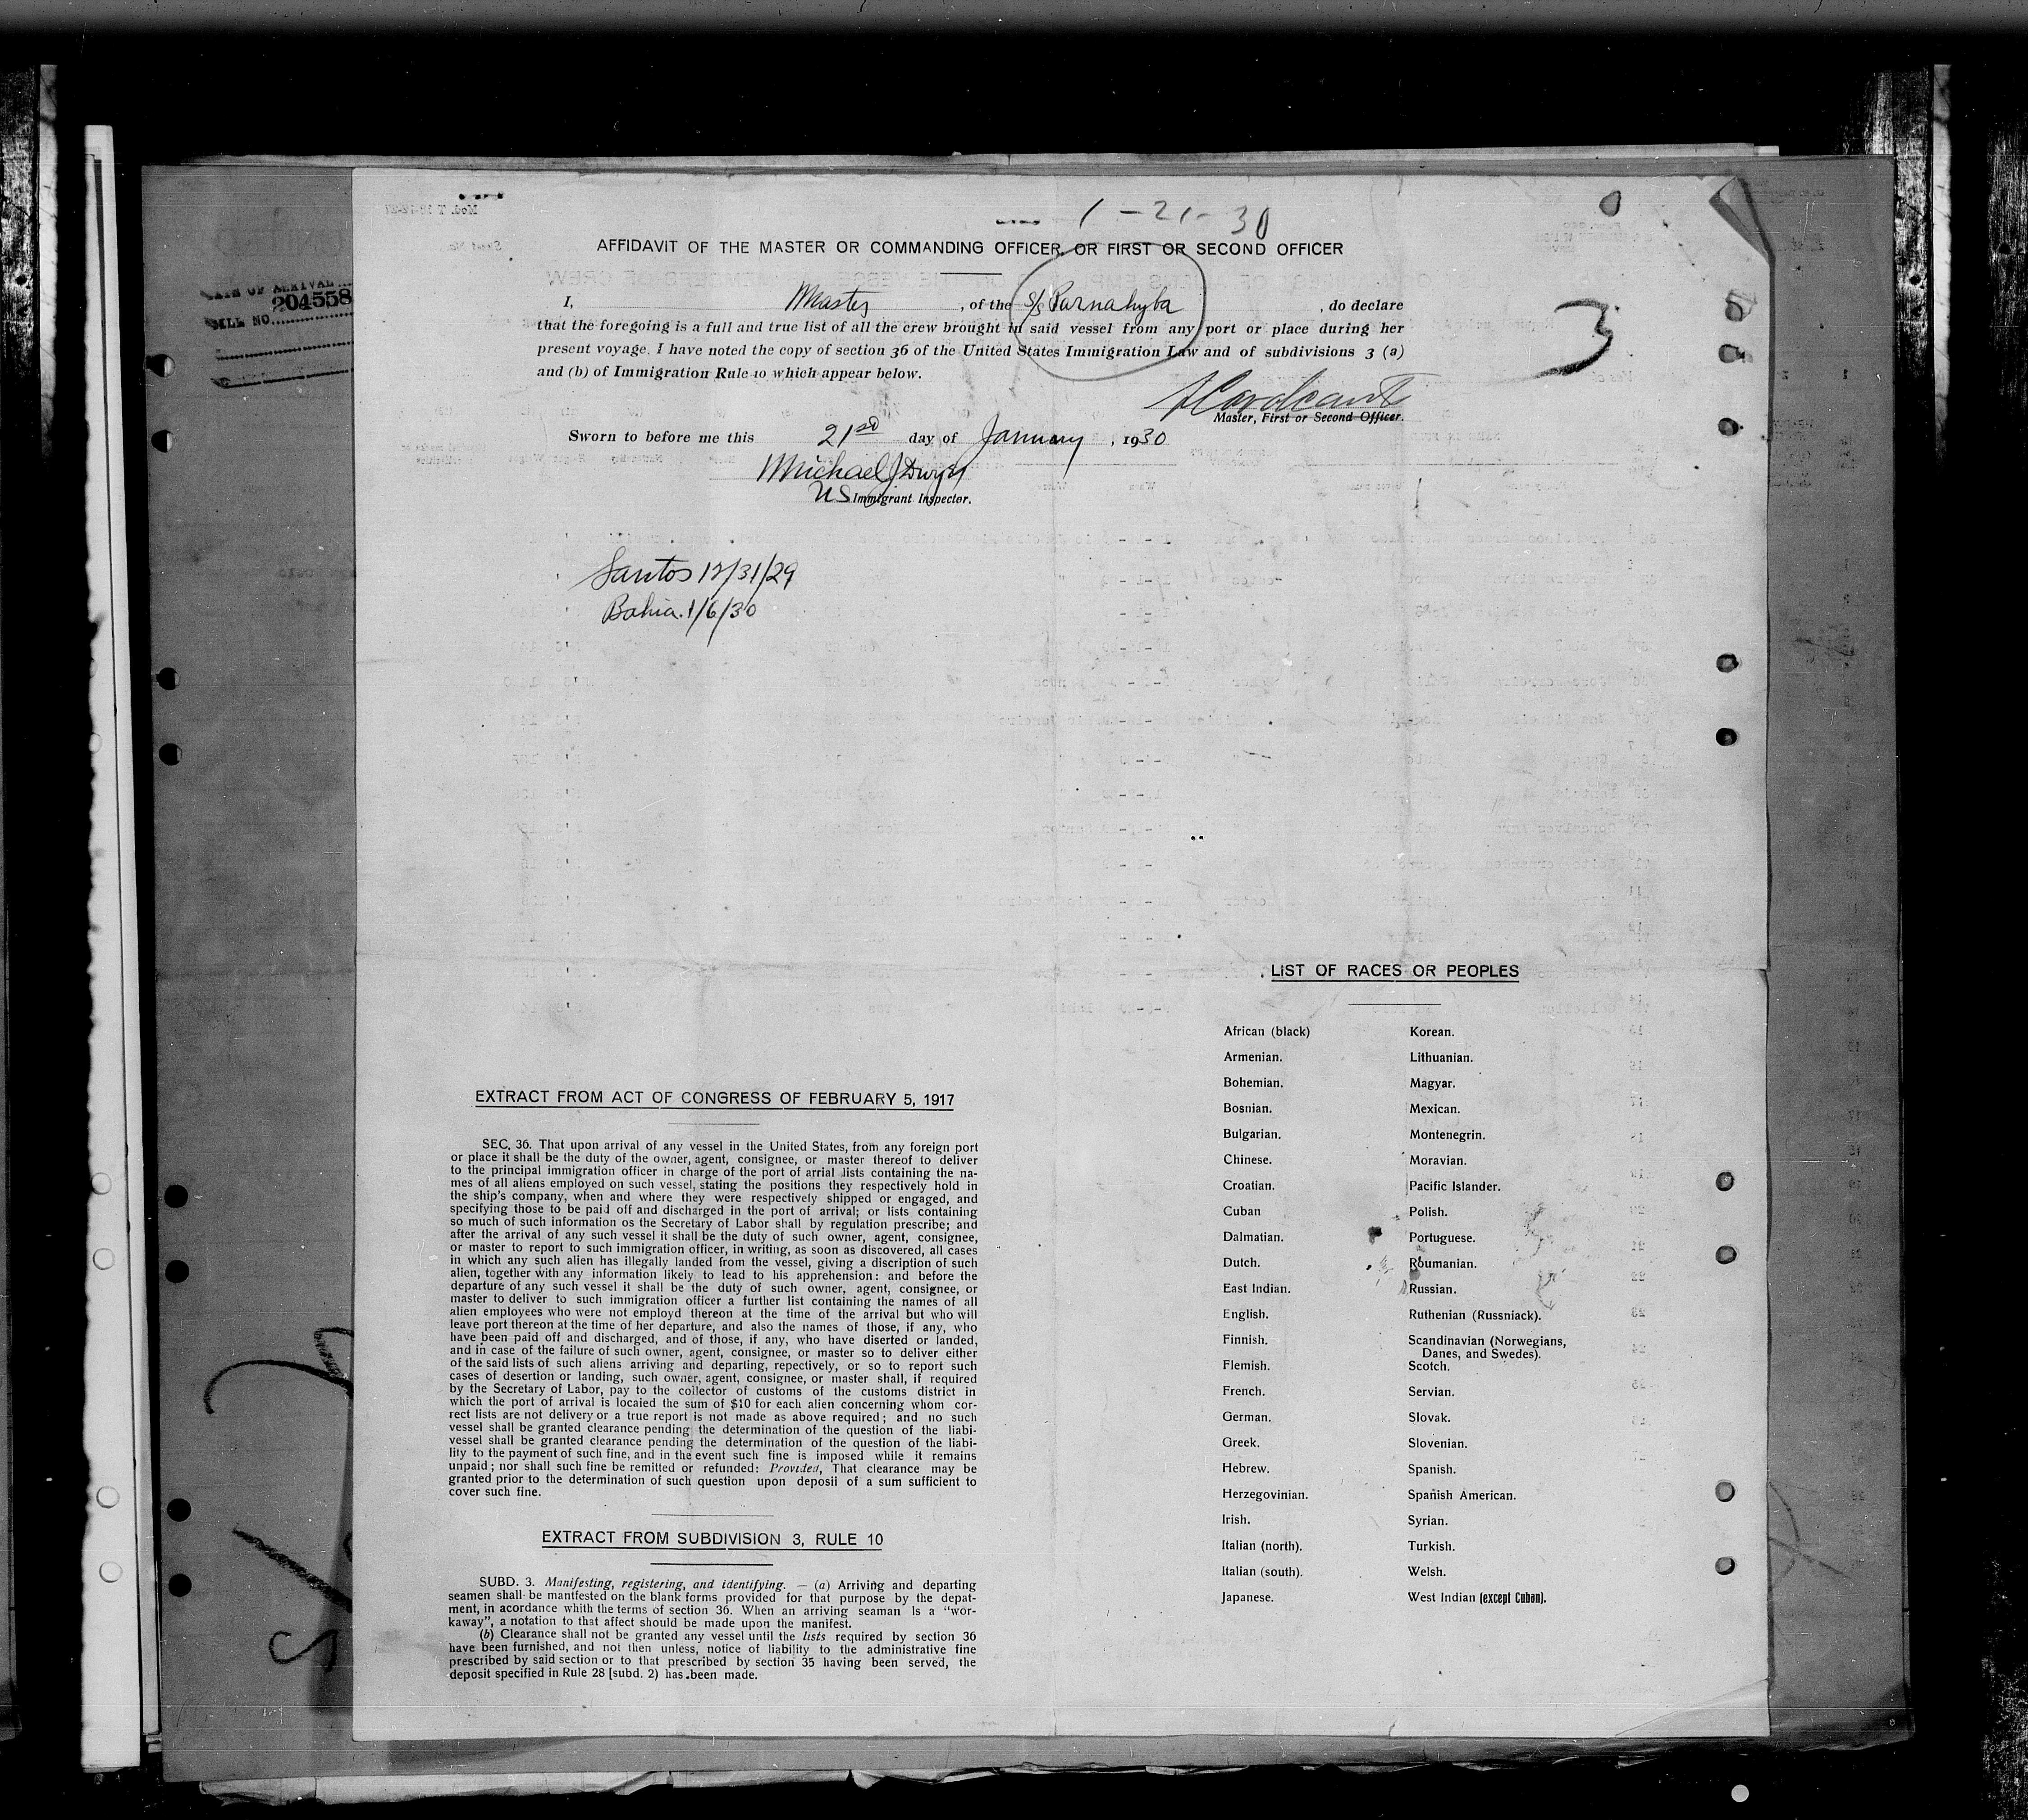 1-21-30
AFFIDAVIT OF THE MASTER OR COMMANDING OFFICER, OR FIRST OR SECOND OFFICER
I, Master, of the S/S Parnahyba, do declare
that the foregoing is a full and true list of all the crew brought in said vessel from any port or place during her
present voyage. I have noted the copy of section 36 of the United States Immigration Law and of subdivisions 3 (a)
and (b) of Immigration Rule 10 which appear below.
3
Master, First or Second Officer.
Sworn to before me this 21st day of January, 1930
Michael J Dwyer
US Immigrant Inspector.
Santos 12/31/29
Bahia. 1/6/30
204558
BILL NO.
EXTRACT FROM ACT OF CONGRESS OF FEBRUARY 5, 1917
SEC. 36. That upon arrival of any vessel in the United States, from any foreign port
or place it shall be the duty of the owner, agent, consignee, or master thereof to deliver
to the principal immigration officer in charge of the port of arrial lists containing the na-
mes of all aliens employed on such vessel, stating the positions they respectively hold in
the ship's company, when and where they were respectively shipped or engaged, and
specifying those to be paid off and discharged in the port of arrival; or lists containing
so much of such information os the Secretary of Labor shall by regulation prescribe; and
after the arrival of any such vessel it shall be the duty of such owner, agent, consignee,
or master to report to such immigration officer, in writing, as soon as discovered, all cases
in which any such alien has illegally landed from the vessel, giving a discription of such
alien, together with any information likely to lead to his apprehension: and before the
departure of any such vessel it shall be the duty of such owner, agent, consignee, or
master to deliver to such immigration officer a further list containing the names of all
alien employees who were not employd thereon at the time of the arrival but who will
leave port thereon at the time of her departure, and also the names of those, if any, who
have been paid off and discharged, and of those, if any, who have diserted or landed,
and in case of the failure of such owner, agent, consignee, or master so to deliver either
of the said lists of such aliens arriving and departing, repectively, or so to report such
cases of desertion or landing, such owner, agent, consignee, or master shall, if required
by the Secretary of Labor, pay to the collector of customs of the customs district in
which the port of arrival is locaied the sum of $10 for each alien concerning whom cor-
rect lists are not delivery or a true report is not made as above required; and no such
vessel shall be granted clearance pending the determination of the question of the liabi-
vessel shall be granted clearance pending the determination of the question of the liabi-
lity to the payment of such fine, and in the event such fine is imposed while it remains
unpaid; nor shall such fine be remitted or refunded: Provided, That clearance may be
granted prior to the determination of such question upon deposii of a sum sufficient to
cover such fine.
EXTRACT FROM SUBDIVISION 3, RULE 10
SUBD. 3. Manifesting, registering, and identifying. — (a) Arriving and departing
seamen shall be mantfested on the blank forms provided for that purpose by the depat-
ment, in acordance whith the terms of section 36. When an arriving seaman Is a "wor-
kaway", a notation to that affect should be made upon the manifest.
(b) Clearance shall not be granted any vessel until the lists required by section 36
have been furnished, and not then unless, notice of liability to the administrative fine
prescribed by said section or to that prescribed by section 35 having been served, the
deposit specified in Rule 28 [subd. 2) has been made.
LIST OF RACES OR PEOPLES
African (black)
Armenian.
Bohemian.
Bosnian.
Bulgarian.
Chinese.
Croatian.
Cuban
Dalmatian.
Dutch.
East Indian.
English.
Finnish.
Flemish.
French.
German.
Greek.
Hebrew.
Herzegovinian.
Irish.
Italian (north).
Italian (south).
Japanese.
Korean.
Lithuanian.
Magyar.
Mexican.
Montenegrin.
Moravian.
Pacific Islander.
Polish.
Portuguese.
Roumanian.
Russian.
Ruthenian (Russniack).
Scandinavian (Norwegians,
Danes, and Swedes).
Scotch.
Servian.
Slovak.
Slovenian.
Spanish.
Spanish American.
Syrian.
Turkish.
Welsh.
West Indian (except Cuban).